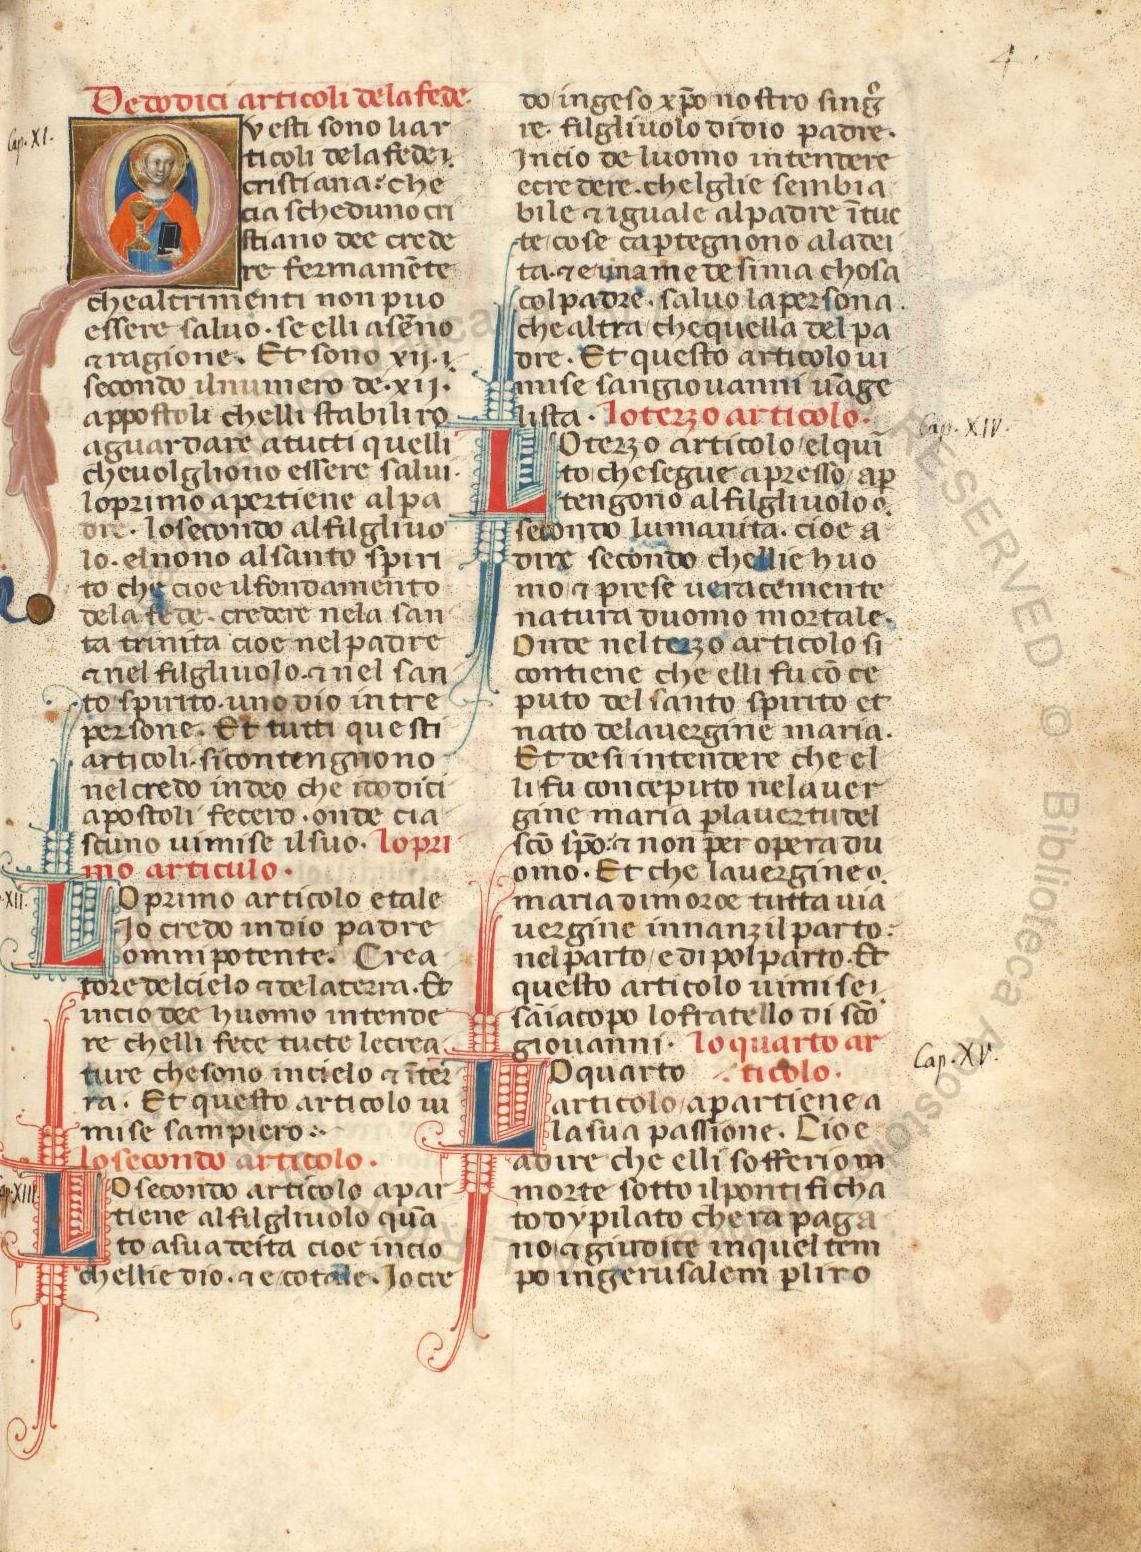 4
De dodici articoli de la fede.
Cap. XI.
Questi sono li ar
ticoli de la fede i
cristiana: che
cia scheduno cri
stiano dee crede
re fermamēte
che altrimenti non puo
essere saluo. se elli a sēno
⁊ ragione. Et sono xij. i
secondo il numero de. xij.
appostoli chelli stabiliro
a guardare a tucti quelli
che uolgliono essere salui.
lo primo apertiene al pa
dre. lo secondo al filgliuo
lo. el nono al santo spiri
to che cioe il fondamento
de la fede. credere ne la san
ta trinita cioe nel padre
⁊ nel filgliuolo. ⁊ nel san
to spirito. uno dio in tre
persone. Et tutti questi
articoli. si contengnono
nel credo in deo che i dodici
apostoli fecero. onde cia
scuno ui mise il suo. lo pri
mo articulo.
XII.
LO primo articolo e tale
Io credo in dio padre
omnipotente. Crea
tore del cielo ⁊ de la terra. Et
in cio dee huomo intende
re chelli fece tucte le crea
ture che sono in cielo ⁊ ī ter
ra. Et questo articolo ui
mise sampiero:
lo secondo articolo.
Cap. XIII
LO secondo articolo apar
tiene al filgliuolo quā
to a sua deita cioe in cio
chellie dio. ⁊ e cotale. Io cre
do in geso xp̄o nostro singͦ
re. filgliuolo di dio padre.
In cio de luomo intendere
e credere. chelglie sembia
bile ⁊ iguale al padre ī tue
te cose capertegnono a la dei
ta. ⁊ e una medesima chosa
col padre. saluo la persona.
che altra che quella del pa
dre. Et questo articolo ui
mise san giouanni uāge
lista. lo terzo articolo.
Cap. XIV.
LO terzo articolo el quī
to che segue apresso ap
tengono al filgliuolo o.
secondo lumanita. cioe a
dire secondo chellie huo
mo ⁊ prese ueracemente
natura duomo mortale.
Onde nel terzo articolo si
contiene che elli fu cō ce
puto del santo spirito et
nato de la uergine maria.
Et de si intendere che el
li fu concepiuto ne la uer
gine maria p la uertu del
sc̄o sp̄o: ⁊ non per opera du
omo. Et che la uergine o.
maria dimoroe tutta uia
uergine innanzi il parto:
nel parto e di pol parto. Et
questo articolo ui mise i
sā iacopo lo fratello di sc̄o
giouanni. lo quarto ar
ticolo.
Cap. XV.
LO quarto
articolo apartiene a
la sua passione. Cioe
a dire che elli sofferi om
morte sotto il pontificha
to dy pilato chera paga
no ⁊ giudice in quel tem
po in gerusalem p li ro
RESERVED © Biblioteca Apostolica